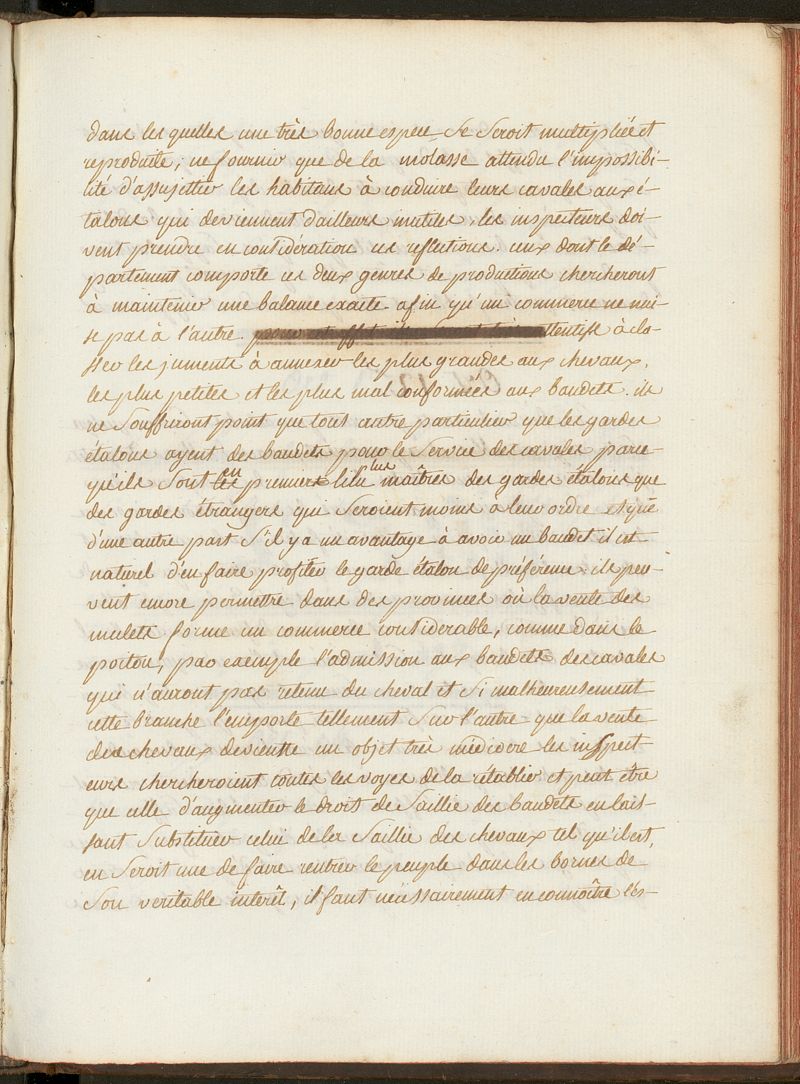 dans les quelles une très bonne espece se seroit multipliée et
reproduite, ne fournir que de la molasse attendu l'impossibi-
lité d'assujettir les habitans à conduire leurs cavales aux é-
talons qui deviennent d'ailleurs inutiles, les inspecteurs doi-
vent prendre en considération ces reflections. ceux dont le dé-
partement comporte ces deux genres de productions chercheront
à maintenir une balance exacte afin qu'un commerce ne nui-
se pas à l'autre. attentifs à clas-
ser les juments à annexer les plus grandes aux chevaux,
les plus petites et les plus mal conformées aux baudets. ils
ne souffriront point que tout autre particulier que les gardes
étalons ayent des baudets pour le service des cavales parce
qu'ils sont en premiers lieu plus maîtres des gardes étalons que
des gardes étrangers qui seroient moins à leur ordre et que
d'une autre part s'il y a un avantage à avoir un baudet il est
naturel d'en faire profiter le garde étalon de préférence. ils peu-
vent encore permettre dans des provinces où la vente des
mulets forme un commerce considerable, comme dans le
poitou, par exemple l'admission aux baudets des cavales
qui n'auront pas retenu du cheval et si malheureusement
cette branche l'emporte tellement sur l'autre que la vente
des chevaux devienne un objet très médiocre les inspect-
eurs chercheroient toutes les voyes de la rétablir et peut être
que celle d'augmenter le droit de saillie des baudets en lais-
sant substituer celui de la saillie des chevaux tel qu'il est,
en seroit une de faire rentrer le peuple dans les bornes de
son veritable interêt, il faut nécessairement en connoître l'és-